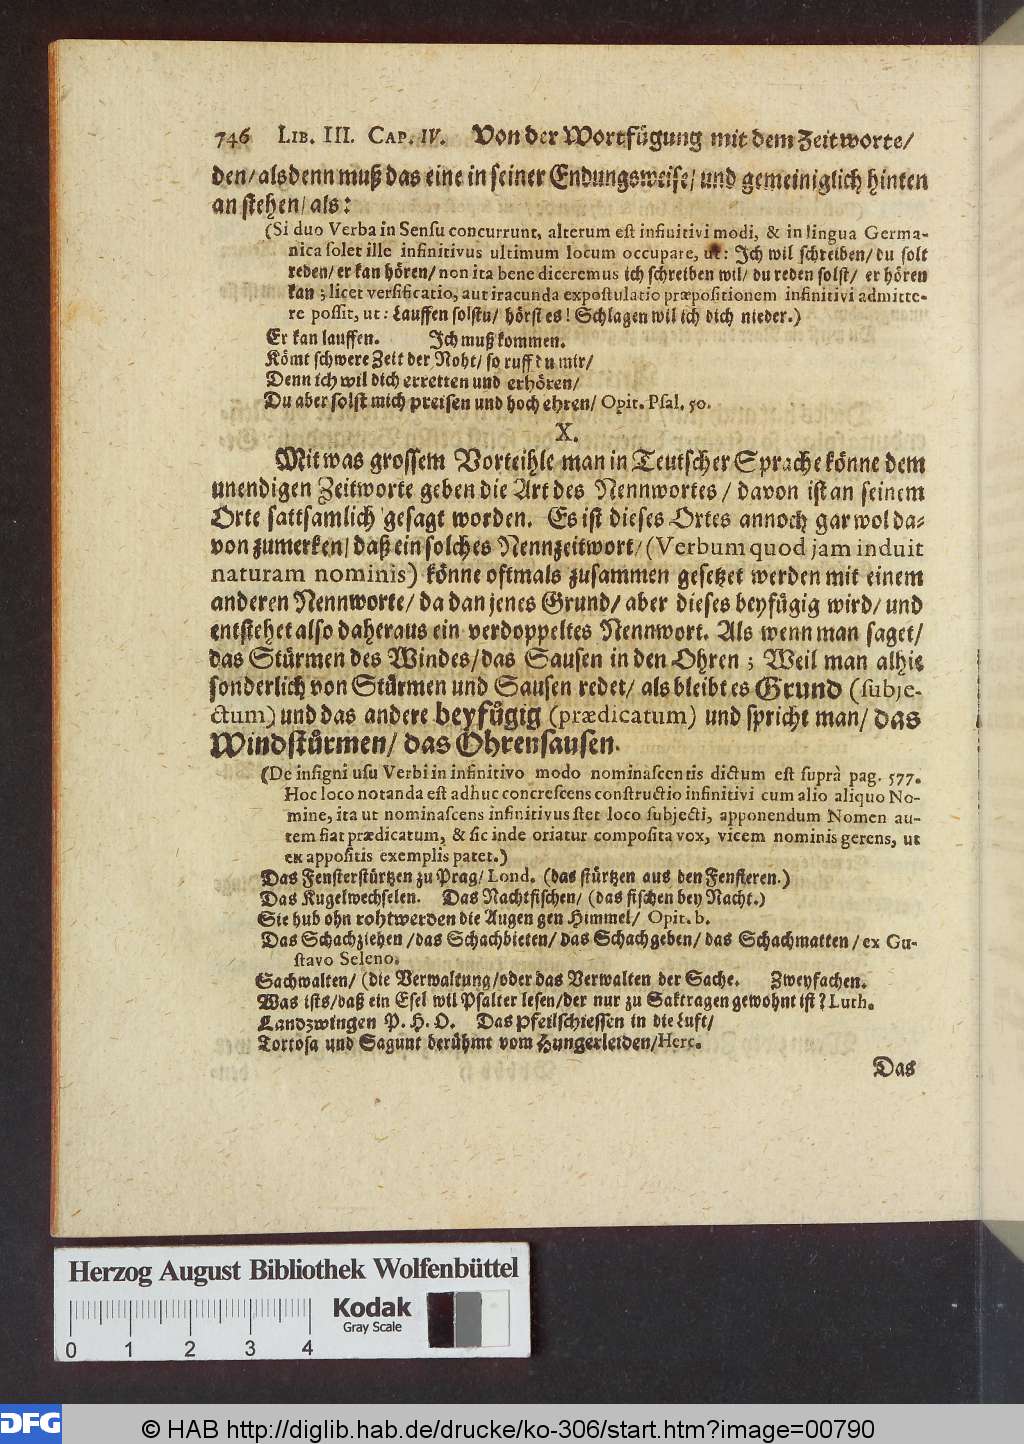 746 LIB. III. CAP. IV. Von der Wortfügung mit dem Zeitworte/
den/ alsdenn muß das eine in seiner Endungsweise/ und gemeiniglich hinten
an stehen/ als:
(Si duo Verba in Sensu concurrunt, alterum est infinitivi modi, & in lingua Germa-
nica solet ille infinitivus ultimum locum occupare, ut: Ich wil schreiben/ du solt
reden/ er kan hören/ non ita bene diceremus ich schreiben wil/ du reden solst/ er hören
kan; licet versificatio, aut iracunda expostulatio præpositionem infinitivi admitte-
re possit, ut: Lauffen solstu/ hörst es! Schlagen wil ich dich nieder.)
Er kan lauffen. Ich muß kommen.
Kömt schwere Zeit der Noht/ so ruff du mir/
Denn ich wil dich erretten und erhören/
Du aber solst mich preisen und hoch ehren/ Opit. Psal. 50.
X.
Mit was grossem Vorteihle man in Teutscher Sprache könne dem
unendigen Zeitworte geben die Art des Nennwortes/ davon ist an seinem
Orte sattsamlich gesagt worden. Es ist dieses Ortes annoch gar wol da-
von zumerken/ daß ein solches Nennzeitwort/ (Verbum quod jam induit
naturam nominis) könne oftmals zusammen gesetzet werden mit einem
anderen Nennworte/ da dan jenes Grund/ aber dieses beyfügig wird/ und
entstehet also daheraus ein verdoppeltes Nennwort. Als wenn man saget/
das Stürmen des Windes/ das Sausen in den Ohren; Weil man alhie
sonderlich von Stürmen und Sausen redet/ als bleibt es Grund (subje-
ctum) und das andere beyfügig (prædicatum) und spricht man/ das
Windstürmen/ das Ohrensausen.
(De insigni usu Verbi in infinitivo modo nominascentis dictum est suprà pag. 577.
Hoc loco notanda est adhuc concrescens constructio infinitivi cum alio aliquo No-
mine, ita ut nominascens infinitivus stet loco subjecti, apponendum Nomen au-
tem fiat prædicatum, & sic inde oriatur composita vox, vicem nominis gerens, ut
ex appositis exemplis patet.)
Das Fensterstürtzen zu Prag/ Lond. (das stürtzen aus den Fensteren.)
Das Kugelwechselen. Das Nachtfischen/ (das fischen bey Nacht.)
Sie hub ohn rohtwerden die Augen gen Himmel/ Opit. b.
Das Schachziehen/ das Schachbieten/ das Schachgeben/ das Schachmatten/ ex Gu-
stavo Seleno.
Sachwalten/ (die Verwaltung/ oder das Verwalten der Sache. Zweyfachen.
Was ists/ daß ein Esel wil Psalter lesen/ der nur zu Saktragen gewohnt ist? Luth.
Landzwingen P. H. O. Das Pfeilschiessen in die Luft/
Tortosa und Sagunt berühmt vom Hungerleiden/ Herc.
Das
Herzog August Bibliothek Wolfenbüttel
Kodak
Gray Scale
0 1 2 3 4
DFG © HAB http://diglib.hab.de/drucke/ko-306/start.htm?image=00790